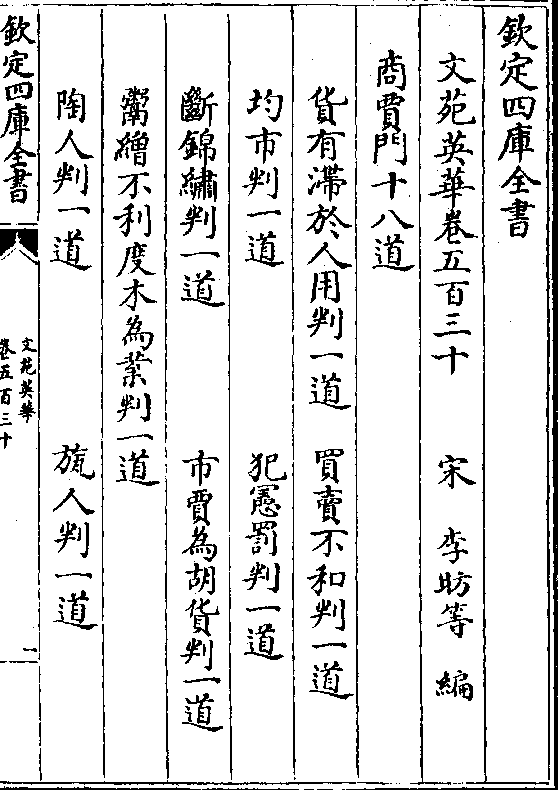 欽定四庫全書
文苑英華卷五百三十 宋 李昉等 編
商賈門十八道
貨有滯於人用判一道 買賣不和判一道
均市判一道 犯憲罰判一道
斷錦繡判一道 市賈為胡貨判一道
鬻繒不利度木為業判一道
陶人判一道 旊人判一道
欽定四庫全書
文苑英華
卷五百三十
一